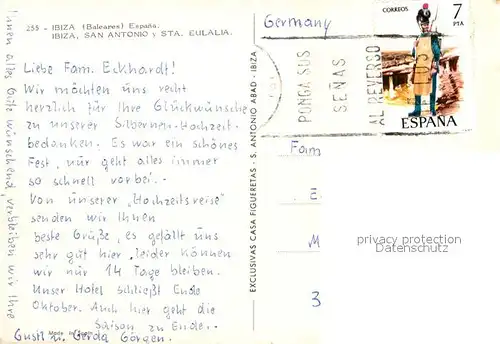 255 - IBIZA (Baleares) España.
IBIZA, SAN ANTONIO y STA. EULALIA.
Liebe Fam. Eckhardt!
Wir möchten uns recht
herzlich für Ihre Glückwünsche
zu unserer Silbernen-Hochzeit.
bedanken. Es war ein schönes
Fest, nur geht alles immer
so schnell vorbei.-
Von unserer "Hochzeitsreise"
senden wir Ihnen
beste Grüße, es gefällt uns
sehr gut hier, leider können
wir nur 14 Tage bleiben.
Unser Hotel schließt Ende
Oktober. Auch hier geht die
Saison zu Ende.-
Ihnen alles Gute wünschend, verbleiben wir Ihre
Gustl u. Gerda Görgen.
Made in Spain
EXCLUSIVAS CASA FIGUERETAS - S. ANTONIO ABAD - IBIZA
Germany
PONGA SUS
SEÑAS
AL REVERSO
CORREOS
7
PTA
ESPAÑA
Fam
E
M
3
privacy protection
Datenschutz